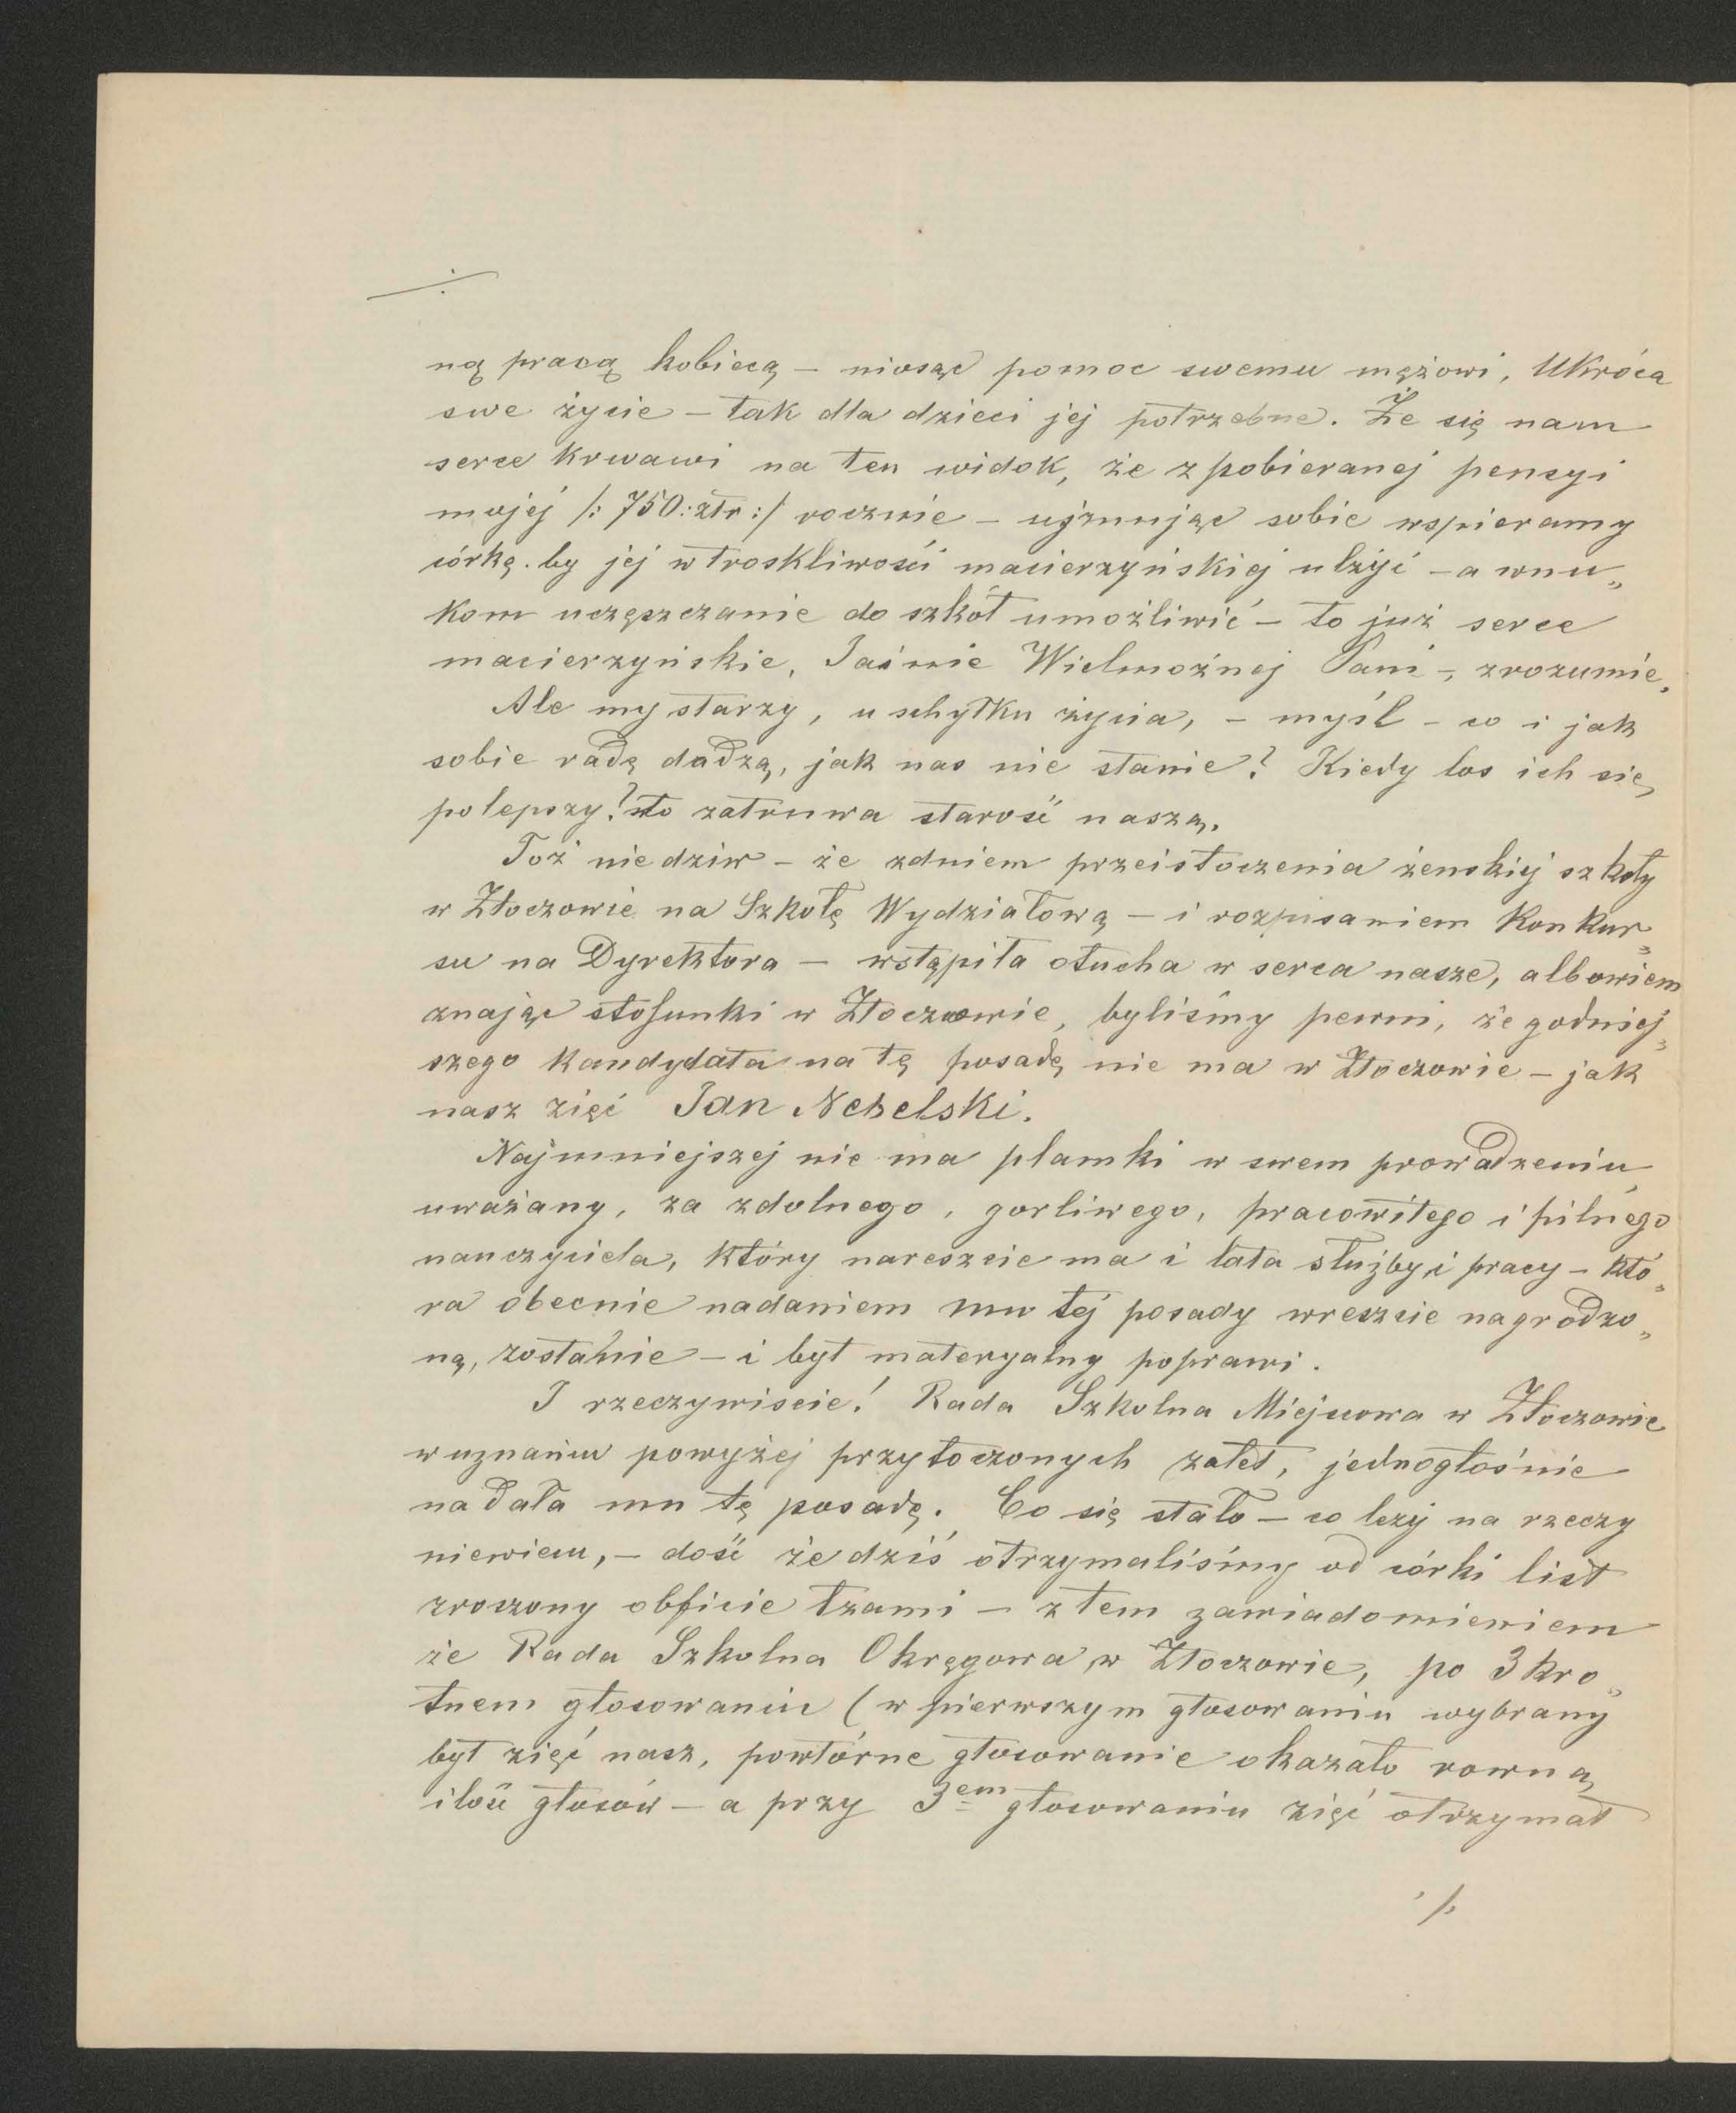 ./.
ną pracą kobiecą – niosąc pomoc swemu mężowi, Ukróca
swe życie – tak dla dzieci jej potrzebne. Że się nam
serce krwawi na ten widok, że z pobieranej pensyi
mojej /: 750: złr :/ rocznie – ujmując sobie wspieramy
córkę. by jej w troskliwości macierzyńskiej ulżyć – a wnu„
kom uczęszczanie do szkół umożliwić – to już serce
macierzyńskie, Jaśnie Wielmożnej Pani –, zrozumie.
Ale my starzy, u schyłku życia, – myśl – co i jak
sobie radę dadzą, jak nas nie stanie? Kiedy los ich się
polepszy? to zatruwa starość naszą.
Toż nie dziw – że z dniem przeistoczenia żenskiej szkoły
w Złoczowie na Szkołę Wydziałową – i rozpisaniem Konkur„
su na Dyrektora – wstąpiła otucha w serca nasze, albowiem
znając stosunki w Złoczowie, byliśmy pewni, że godniej„
szego kandydata na tę posadę nie ma w Złoczowie – jak
nasz zięć Jan Nebelski.
Najmniejszej nie ma plamki w swem prowadzeniu,
uważany, za zdolnego, gorliwego, pracowitego i pilnego
nauczyciela, który nareszcie ma i lata służby i pracy – któ„
ra obecnie nadaniem mu tej posady wreszcie nagrodzo„
ną, zostanie – i byt materyalny poprawi.
I rzeczywiscie! Rada Szkolna Miejscowa w Złoczowie
w uznaniu powyżej przytoczonych zalet, jednogłośnie
nadała mu tę posadę. Co się stało – co leży na rzeczy
niewiem, – dość że dziś otrzymaliśmy od córki list
zroszony obficie łzami – z tem zawiadomieniem
że Rada Szkolna Okręgowa w Złoczowie, po 3 kro„
tnem głosowaniu (w pierwszym głosowaniu wybrany
był zięć nasz, powtórne głosowanie okazało rowną
ilość głosów – a przy 3em głosowaniu zięć otrzymał
./.